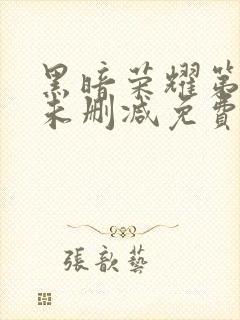 黑暗荣耀第
未删减免費
張歆藝